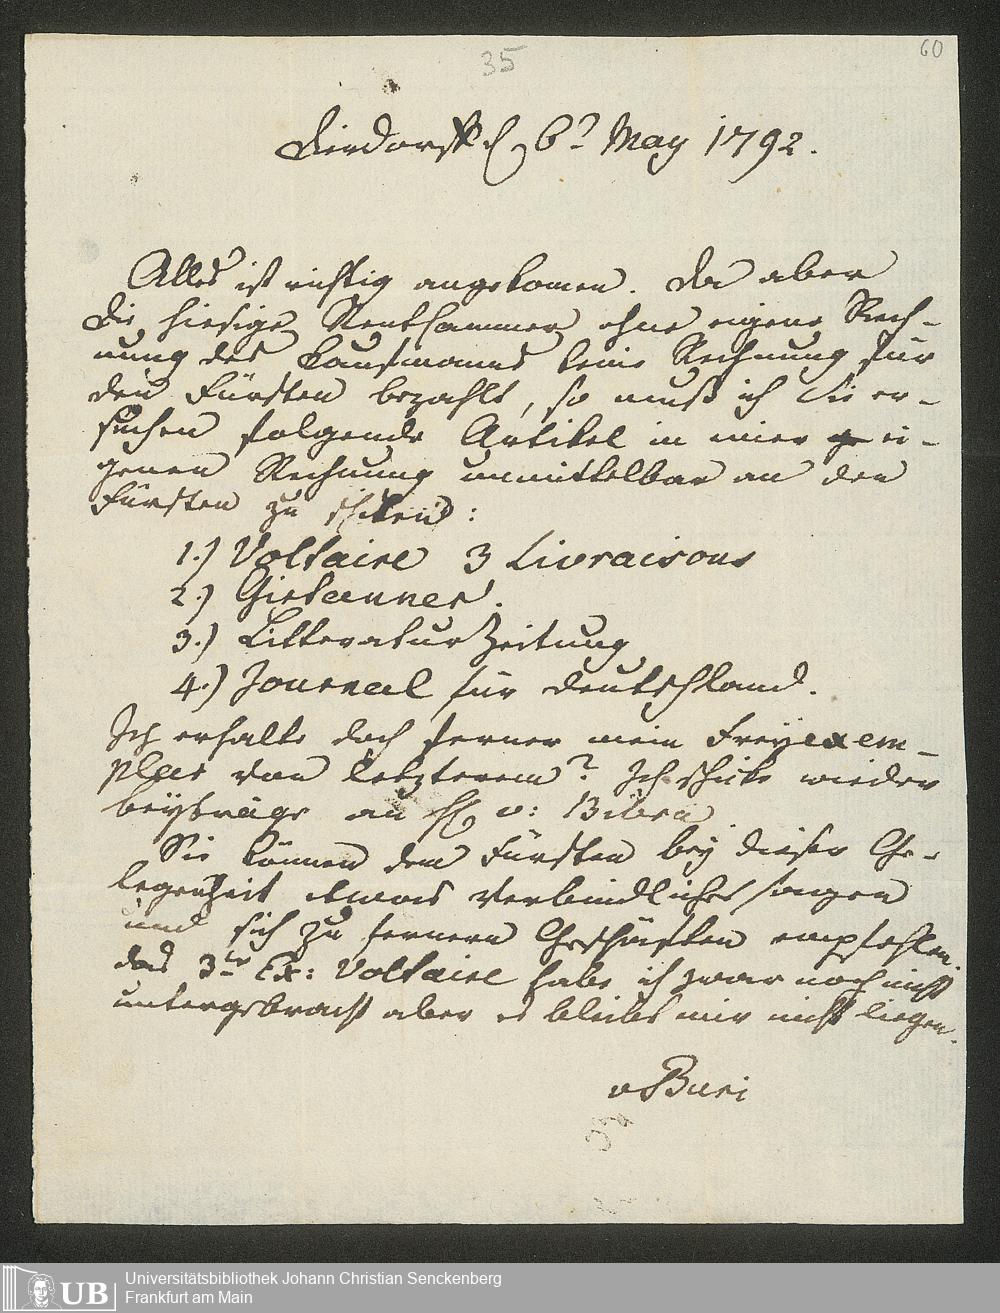 35
60
Dierdorf d 6t May 1792.
Alles ist richtig angekomen. Da aber
die hiesige Rentkammer ohne eigene Rech-
nung des Kaufmanns keine Rechnung für
den Fürsten bezahlt, so muß ich Sie er-
suchen folgende Artikel in einer ei-
genen Rechnung unmittelbar an den
Fürsten zu schiken:
1.) Voltaire 3 Livraisons
2.) Girtanner.
3.) Litteratur Zeitung
4.) Journal für Deutschland.
Ich erhalte doch ferner mein Freyexem-
plar von letzterem? Ich schike wieder
beyträge an H v: Bibra
Sie können dem Fürsten bey dieser Ge-
legenheit etwas verbindliches sagen
und sich zu fernern Geschäften empfehlen.
das 3te Ex: Voltaire habe ich zwar noch nicht
untergebracht aber es bleibt mir nicht liegen.
vBuri
UB
Universitätsbibliothek Johann Christian Senckenberg
Frankfurt am Main